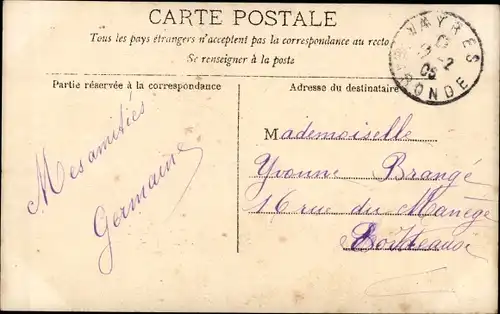 CARTE POSTALE
Tous les pays étrangers n'acceptent pas la correspondance au recto
Se renseigner à la poste
Partie réservée à la correspondance
Adresse du destinataire
VAYRES
GIRONDE
Mes amitiés
Germaine
Mademoiselle
Yvonne Brangé
16 rue du Manège
Bordeaux